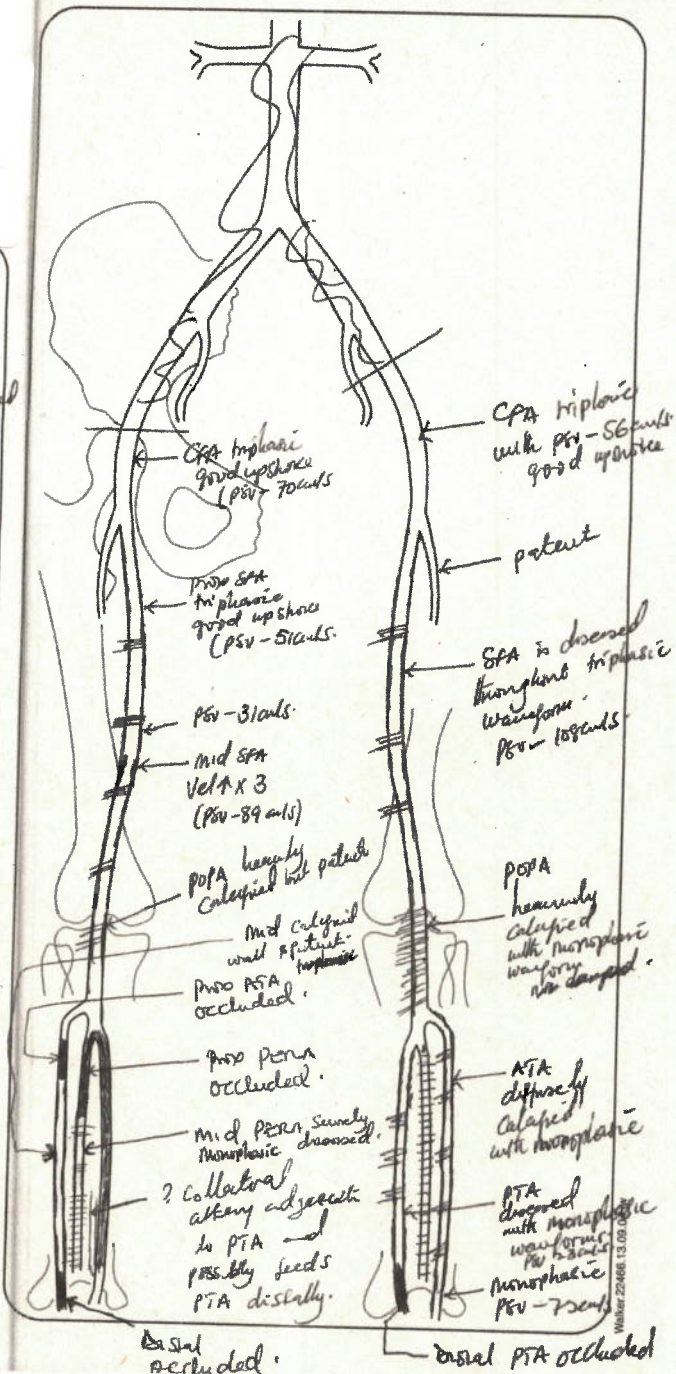 CFA triphasic
good upstroke
(PSV - 70cm/s
Prox SFA
triphasic
good upstroke
(PSV - 51cm/s.
PSV - 31cm/s.
mid SFA
Vel↑ x 3
(PSV - 89 cm/s)
POPA heavily
calcified but patent
Mid calcified
wall & patent
Prox ATA
occluded.
Prox PERA
occluded.
Mid PERA severely
Monophasic diseased.
? Collateral
artery adjacent
to PTA
possibly feeds
PTA distally.
Distal
occluded.
CFA triphasic
with PSV - 56cm/s
good upstroke
patent
SFA is diseased
throughout triphasic
waveform.
PSV - 108cm/s.
POPA
heavily
calcified
with monophasic
waveform
non damped.
ATA
diffusely
calcified
with monophasic
PTA
diseased
with monophasic
waveforms
PSV
Monophasic
PSV - 72cm/s
Distal PTA occluded